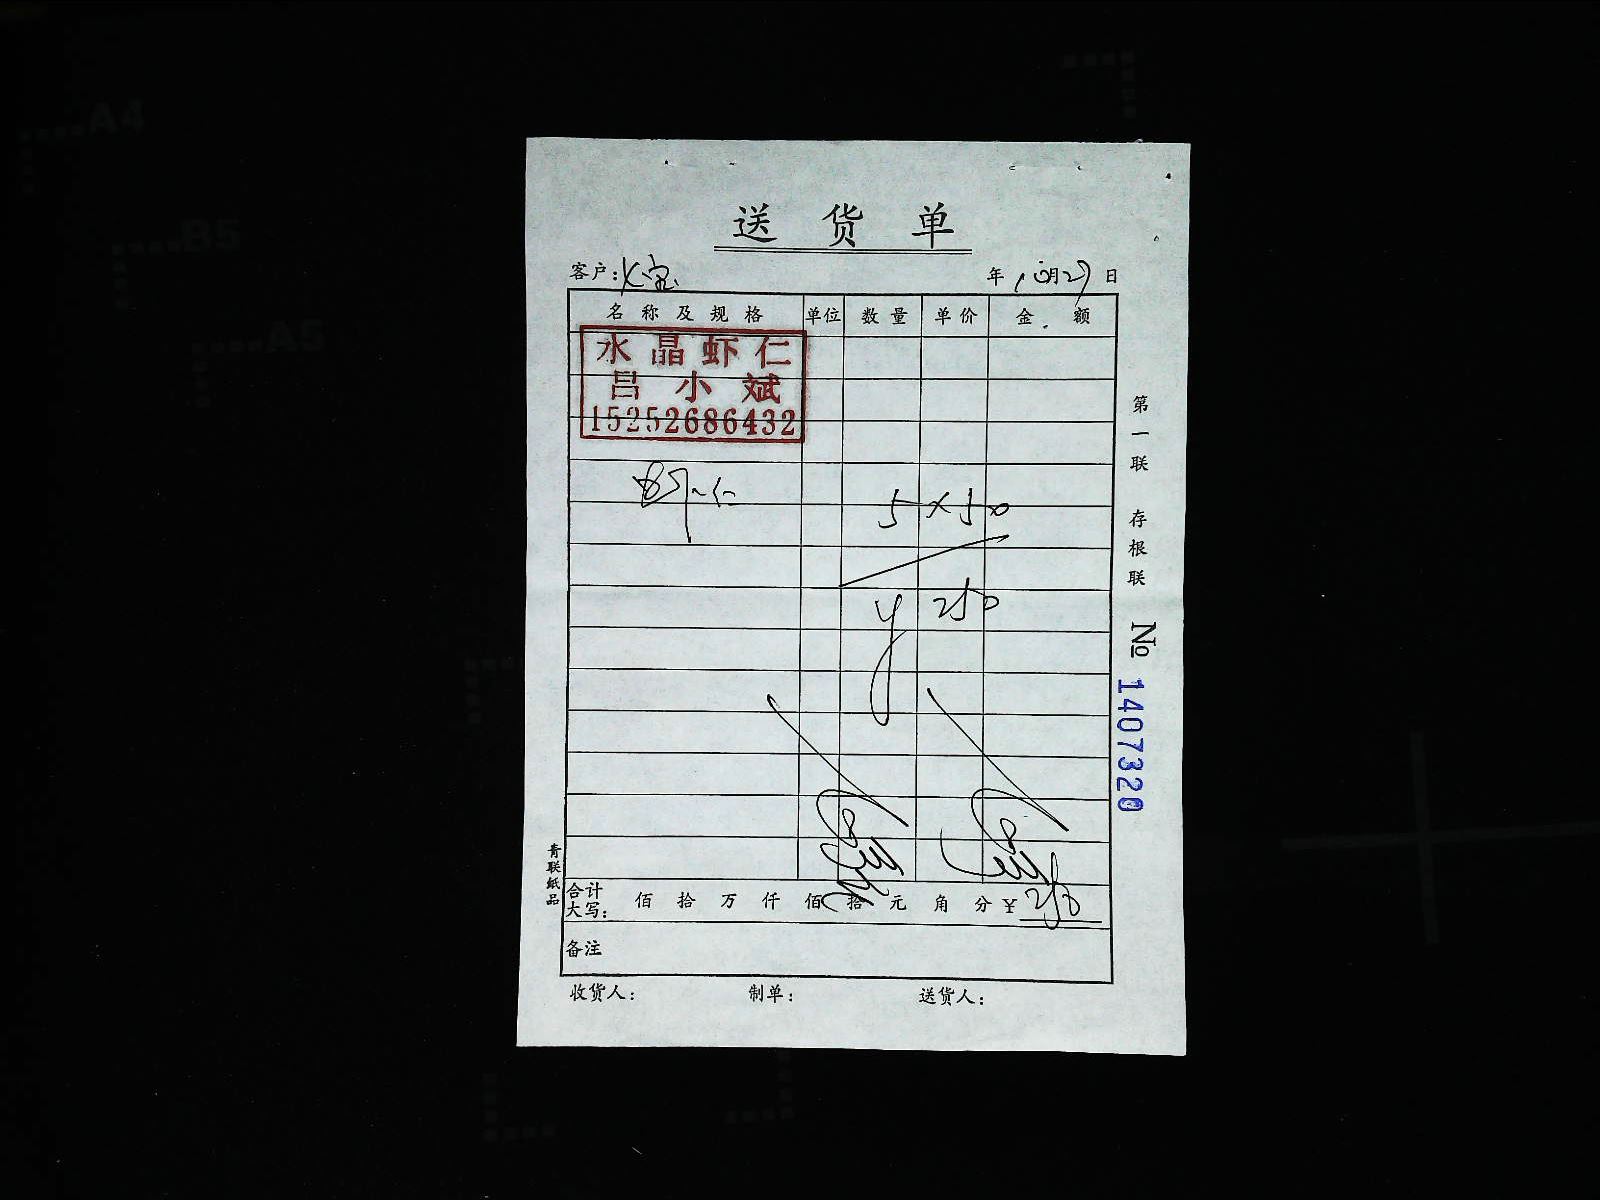 A4
B5
A5
送货单
客户:
年 10月27日
名称及规格 单位 数量 单价 金额
水晶虾仁
吕小斌
15252686432
虾仁 5×50
¥250
合计大写: 佰 拾 万 仟 佰 拾 元 角 分 ¥250
备注
收货人: 制单: 送货人:
第一联 存根联 № 1407320
青联纸品